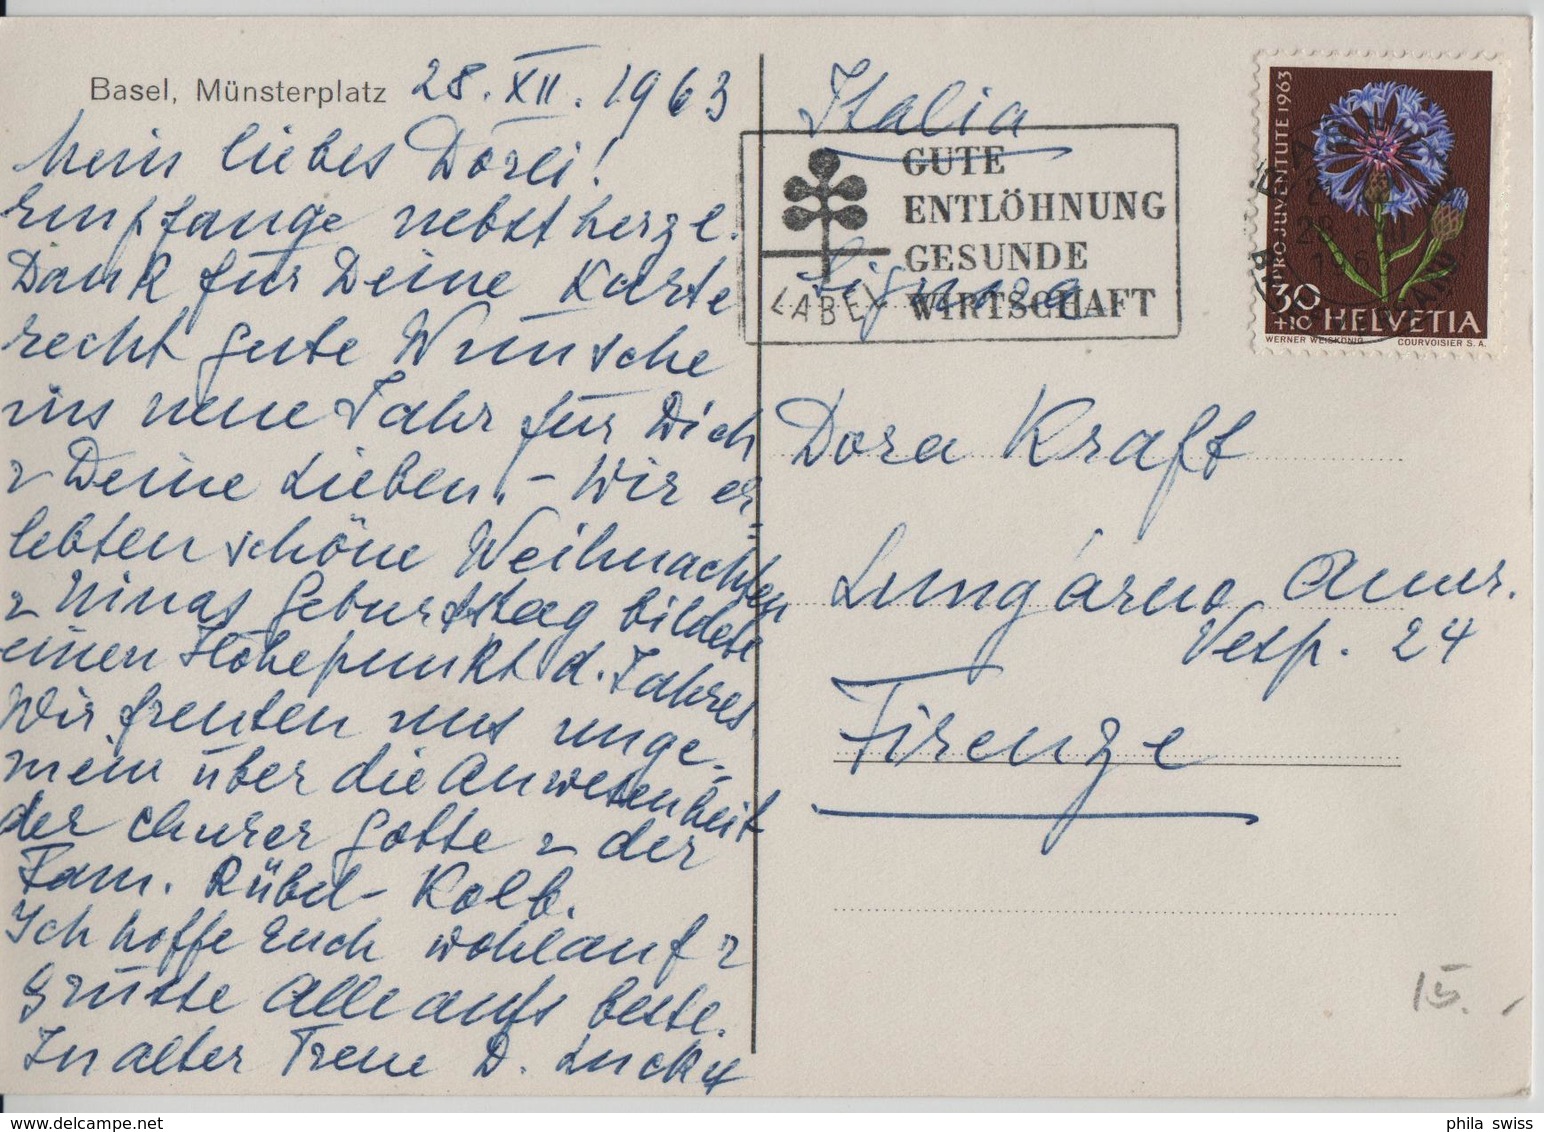 Basel, Münsterplatz 28. XII. 1963
Mein liebes Dorli!
Empfange nebst herzl.
Dank für Deine Karte
recht gute Wünsche
ins neue Jahr für Dich
& Deine Lieben. - Wir er-
lebten schöne Weihnachten
& Ninas Geburtstag bildete
einen Höhepunkt d. Jahres
Wir freuten uns unge-
mein über die Anwesenheit
der Churer Gotte & der
Fam. Rübel-Kolb.
Ich hoffe Euch wohlauf &
grüsse Alle aufs beste.
In alter Treue D. Lucky
Italia
GUTE
ENTLÖHNUNG
GESUNDE
WIRTSCHAFT
LABEL
Signora
Dora Kraft
Lungárno Amer.
Vesp. 24
Firenze
PRO JUVENTUTE 1963
30
+10 HELVETIA
WERNER WEISKÖNIG COURVOISIER S.A.
15.-
phila swiss